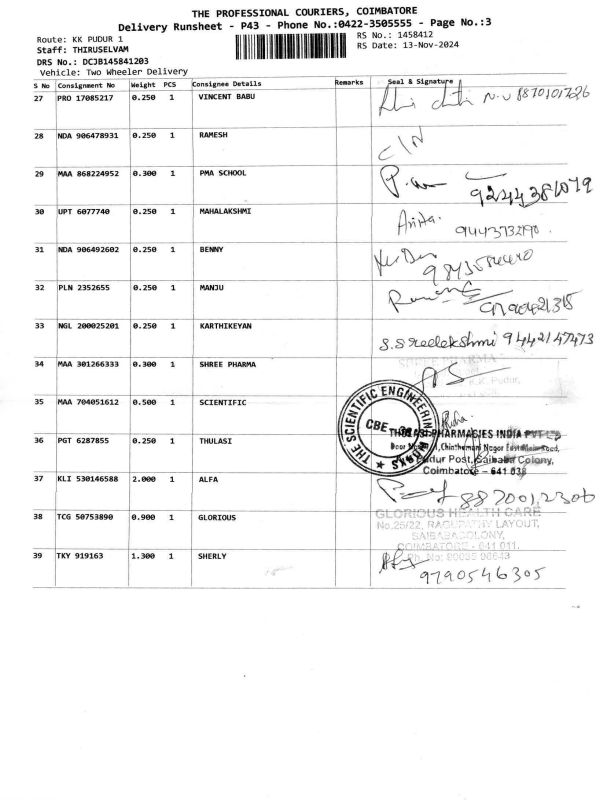 THE PROFESSIONAL COURIERS, COIMBATORE
Delivery Runsheet - P43 - Phone No.:0422-3505555 - Page No.:3
Route: KK PUDUR 1
RS No.: 1458412
Staff: THIRUSELVAM
RS Date: 13-Nov-2024
DRS No.: DCJB145841203
Vehicle: Two Wheeler Delivery
S No Consignment No Weight PCS Consignee Details Remarks Seal & Signature
27 PRO 17085217 0.250 1 VINCENT BABU
28 NDA 906478931 0.250 1 RAMESH
29 MAA 868224952 0.300 1 PMA SCHOOL
30 UPT 6077740 0.250 1 MAHALAKSHMI
31 NDA 906492602 0.250 1 BENNY
32 PLN 2352655 0.250 1 MANJU
33 NGL 200025201 0.250 1 KARTHIKEYAN S.Sreelekshmi 9442147473
34 MAA 301266333 0.300 1 SHREE PHARMA
SHREE PHARMA
K.K. Pudur,
35 MAA 704051612 0.500 1 SCIENTIFIC
THE SCIENTIFIC ENGINEERING WORKS
CBE
36 PGT 6287855 0.250 1 THULASI
THULASI PHARMACIES INDIA PVT LTD
Pudur Post, Saibaba Colony,
Coimbatore - 641 038
37 KLI 530146588 2.000 1 ALFA
38 TCG 50753890 0.900 1 GLORIOUS
GLORIOUS HEALTH CARE
No.25/22, RAGUPATHY LAYOUT,
SAIBABACOLONY,
COIMBATORE - 641 011.
39 TKY 919163 1.300 1 SHERLY
9790546305